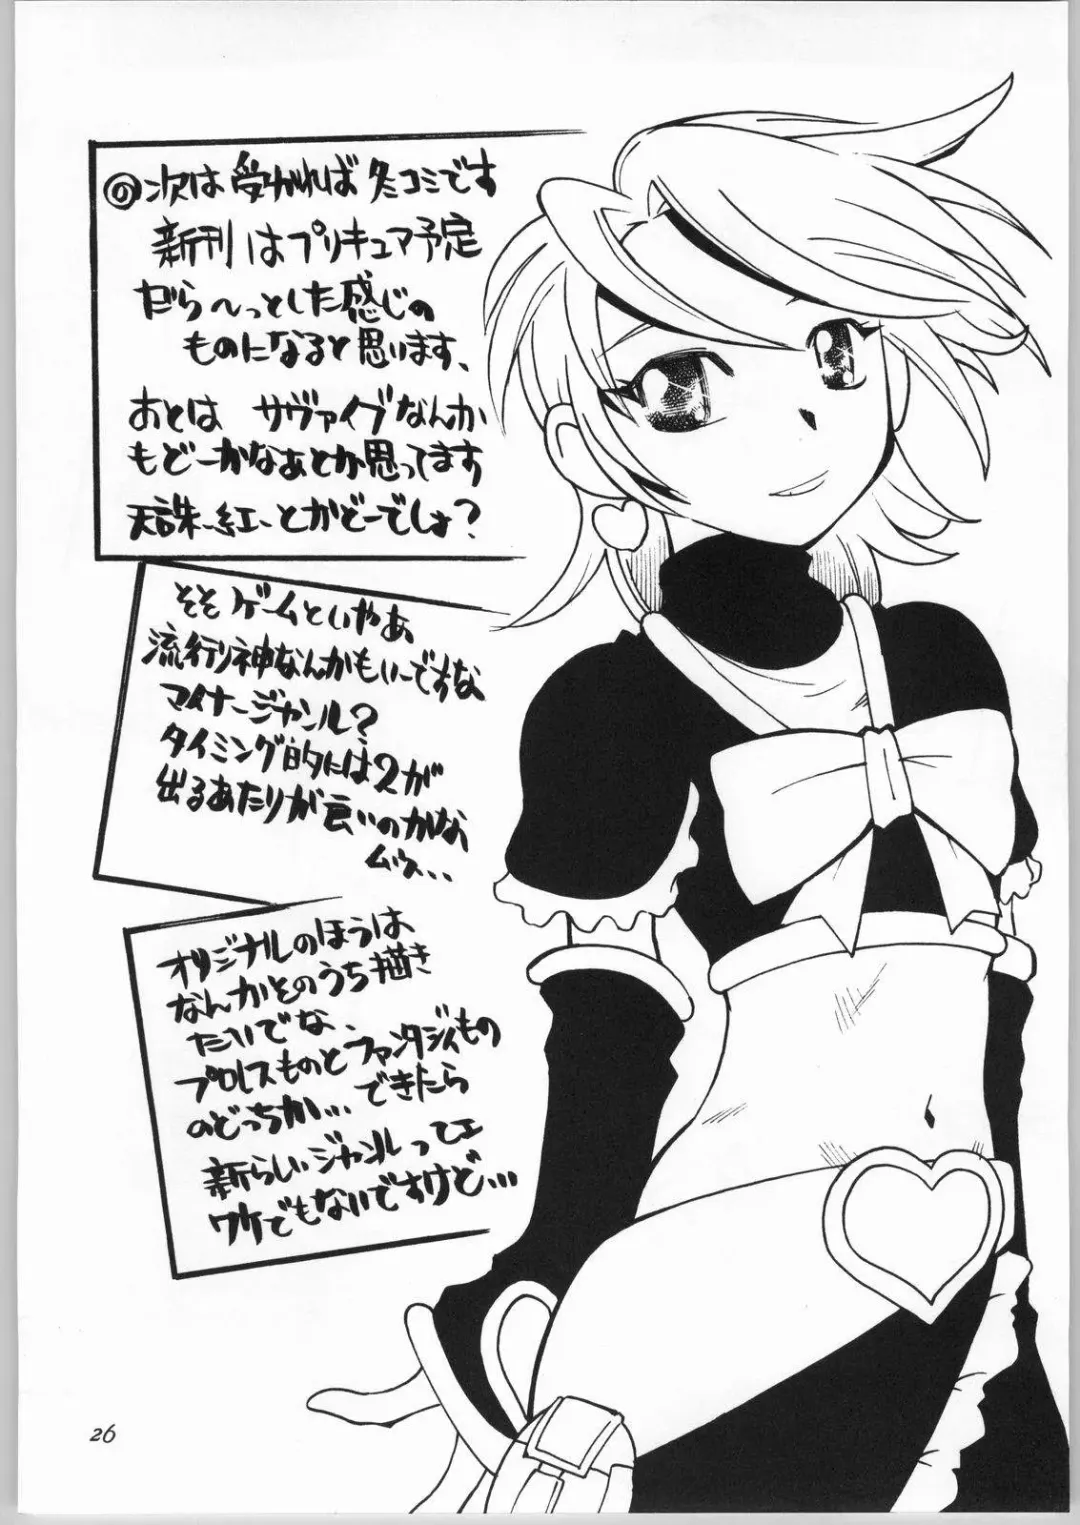 ◎次は受かれば冬コミです
新刊はプリキュア予定
だら〜っとした感じの
ものになると思います、
あとは サヴァイヴなんか
もどーかなぁとか思ってます
天誅-紅-とかどーでしょ？
そそ ゲームといやぁ
流行り神なんかもいーですな
マイナージャンル？
タイミング的には2が
出るあたりが良いのかな
ムゥ…
オリジナルのほうは
なんかとのうち描き
たいでな、
プロレスものとファンタジィもの
のどっちか… できたら
新らしいジャンルってェ
ワケでもないですけど…
26